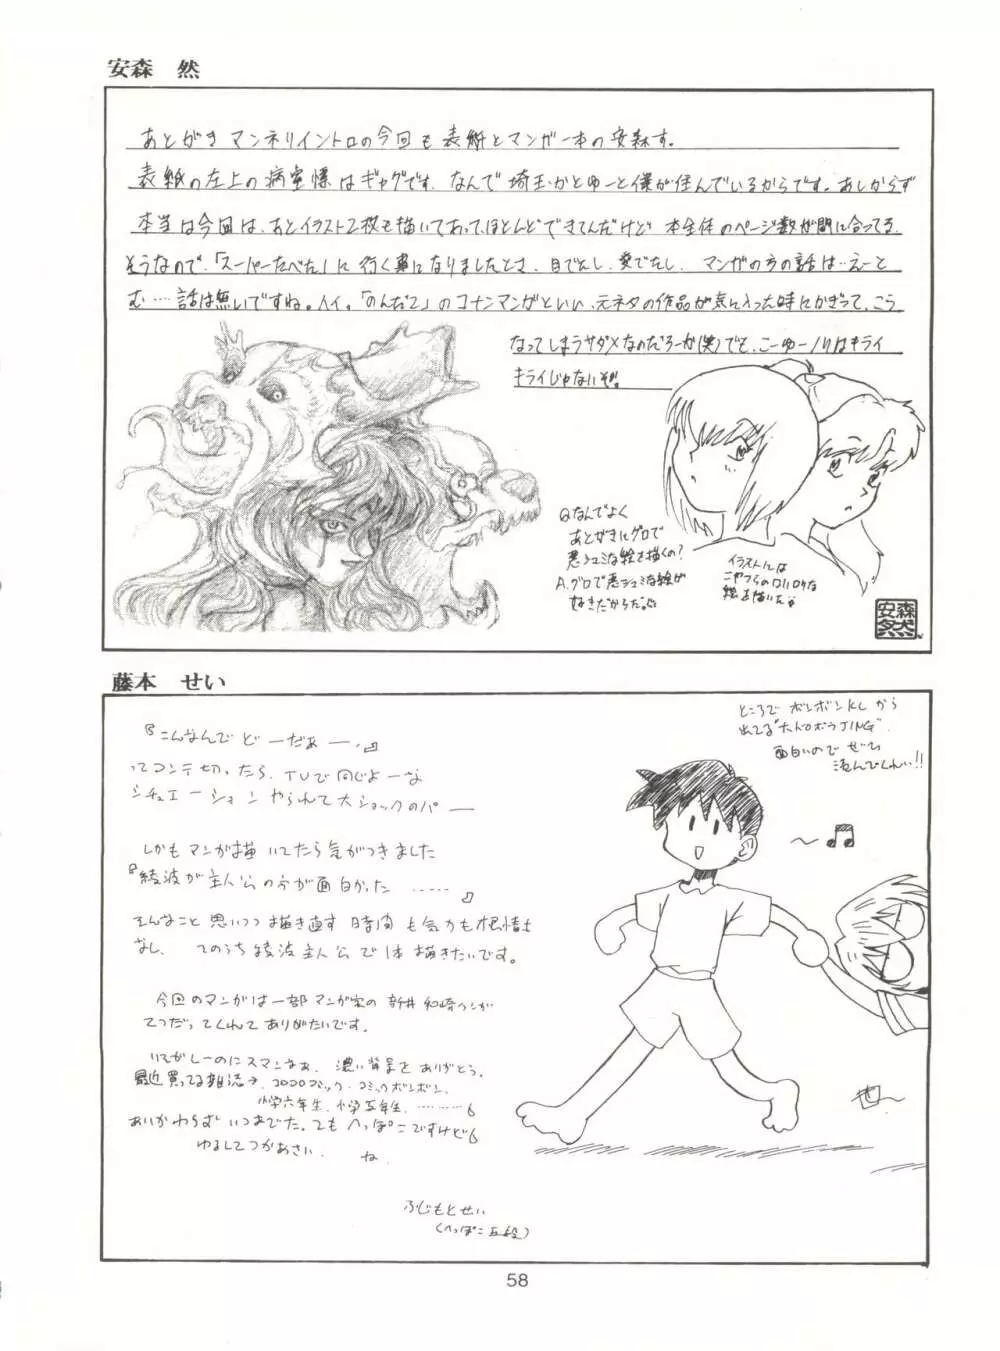 安森 然
あとがき マンネリイントロの今回も表紙とマンガ一本の安森す。
表紙の左上の病室憬はギャグです。なんで埼玉かとゆーと僕が住んでいるからです。あしからず
本当は今回は、あとイラスト2枚も描いてあって、ほとんどできてんだけど 本全体のページ数が間に合ってる
そうなので、「スーパーたべた」に行く事になりましたとさ、目でたし、愛でたし、マンガの方の話は…えーと
む……話は無いですね。イイ。「のんだ2」のコナンマンガといい、元ネタの作品が気に入った時にかぎって、こう
なってしまうサダメなのだろーか(笑)でも、こーゆーノリはキライ
キライじゃないぞ!!
Qなんでよく
あとがきにグロで
悪シュミな絵を描くの?
A.グロで悪シュミな絵が
好きだからだ
イラストには
こやつらのロリロリな
絵を描いた
安森
然
藤本 せい
ところで ボンボンKCから
出てる"大ドロボウJING"
面白いので ぜひ
読んでくれい!!
『こんなんで どーだぁー、』
ってコンテ切ったら、TVで同じよーな
シチュエーション やられて大ショックのパー
しかもマンガ描いてたら気がつきました
『綾波が主人公の方が面白かった……』
そんなこと思いつつ描き直す時間も気力も根情も
なし、そのうち綾波主人公で1本描きたいです。
今回のマンガは一部マンガ家の新井和崎クンが
てつだってくれてありがたいです。
いそがしーのにスマンなぁ、濃い背景をありがとう。
最近買ってる雑誌→コロコロコミック・コミックボンボン、
小学六年生、小学五年生、………6
あいかわらずいつまでた、てもへっぽこですけど6
ゆるしてつかあさい、
ね、
ふじもとせい
(へっぽこ五段)
58